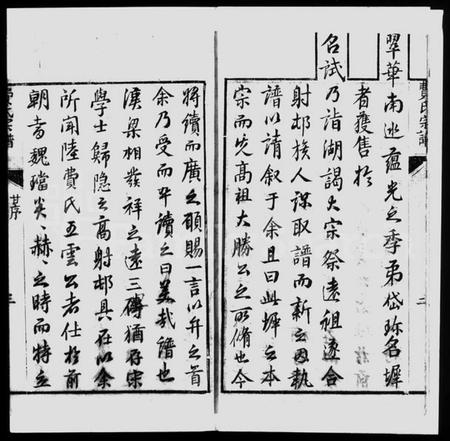 費氏宗譜
二
翠華南巡蘊光之季弟岱珎名墀
者獲售於
召試乃詣湖謁大宗祭遠祖遂合
射邨族人謀取譜而新之因執
譜以請叙于余且曰此墀之本
宗而先高祖大勝公之所脩也今
將續而廣之願賜一言以弁之首
余乃受而卒讀之曰美哉譜也
漢梁相發祥之遠三磚猶存宋
學士歸隱之高射邨具在以余
所聞陸費氏五雲公者仕於前
朝當魏璫炎赫之時而特立
費氏宗譜
序
三